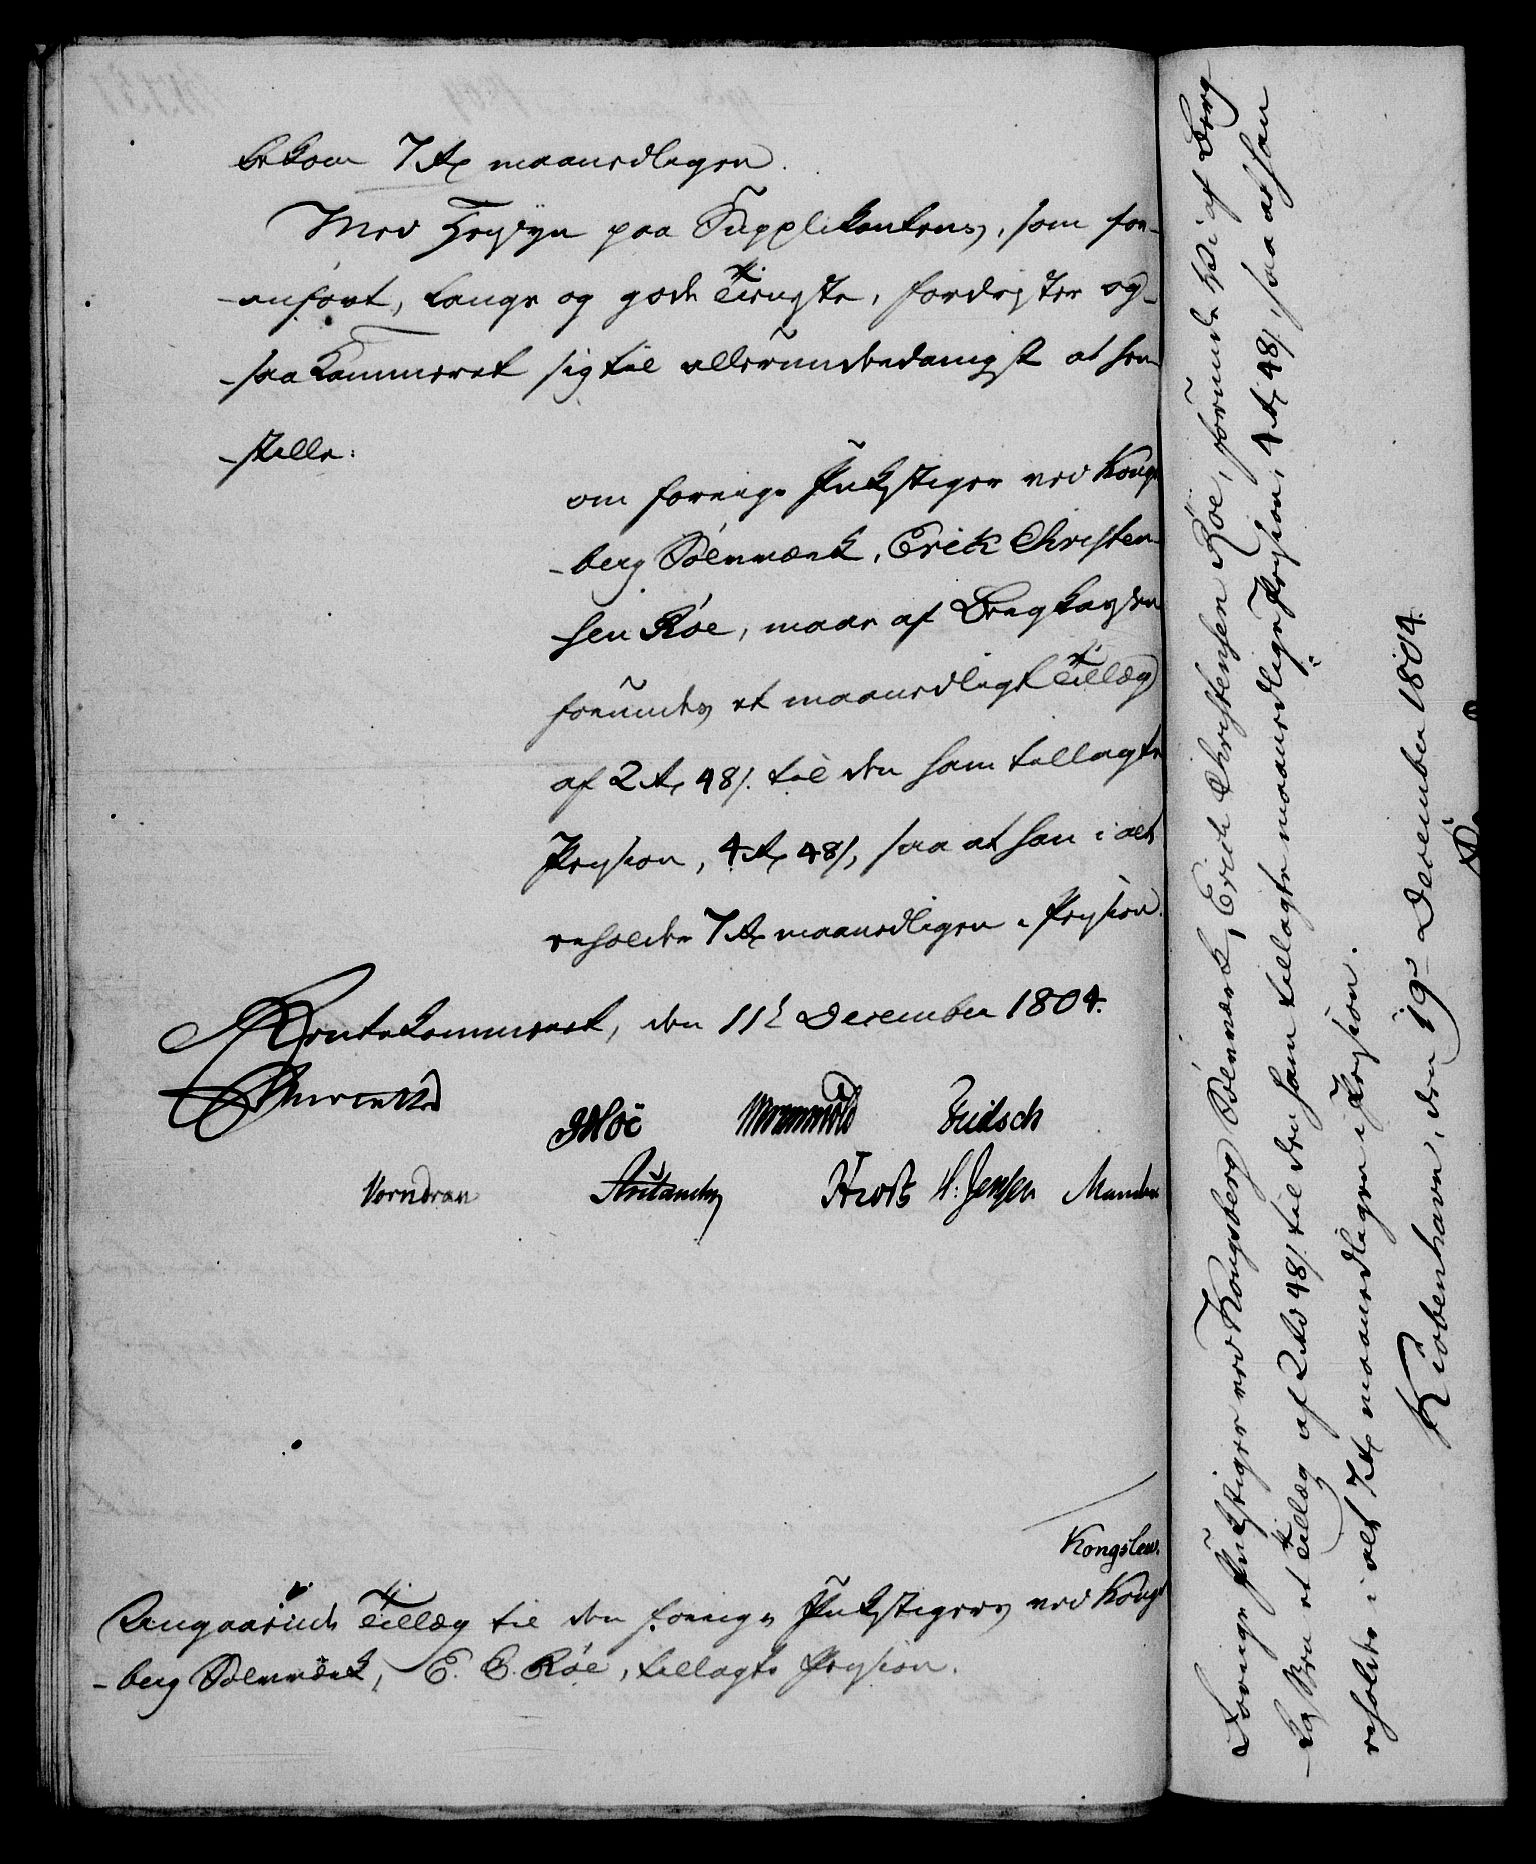 bekom 7 rd maanedligen.
Med Hensyn paa Supplikantens, som for-
-anført, lange og gode Tieneste, fordrister og-
-saa Kammeret sig til allerunderdanigst at hen-
-stille:
om forrige Pukstiger ved Kongs-
-berg Sølvværk, Erik Christen-
sen Röe, maae af Bergkassen
forundes et maanedligt Tillæg
af 2 rd 48 s. til den ham tillagte
Pension, 4 rd 48 s, saa at han i alt
erholder 7 rd maanedligen i Pension.
Rentekammeret, den 11te December 1804.
Hoë Wormskiold Fridsch
Vorndran H. Jensen
Kongsberg.
Angaaende Tillæg til den forrige Pukstigers ved Kongs-
-berg Sølvværk, E. C. Röe, tillagte Pension.
Forrige Pukstiger ved Kongsberg Sølvværk, Erich Christensen Röe, forunde Vi af Berg-
-Kassen et Tillæg af 2 rd 48 s. til den ham tillagte maanedlige Pension, 4 rd 48 s, saa at han
erholder i alt 7 rd maanedligen i Pension.
Kiøbenhavn, den 19de December 1804.